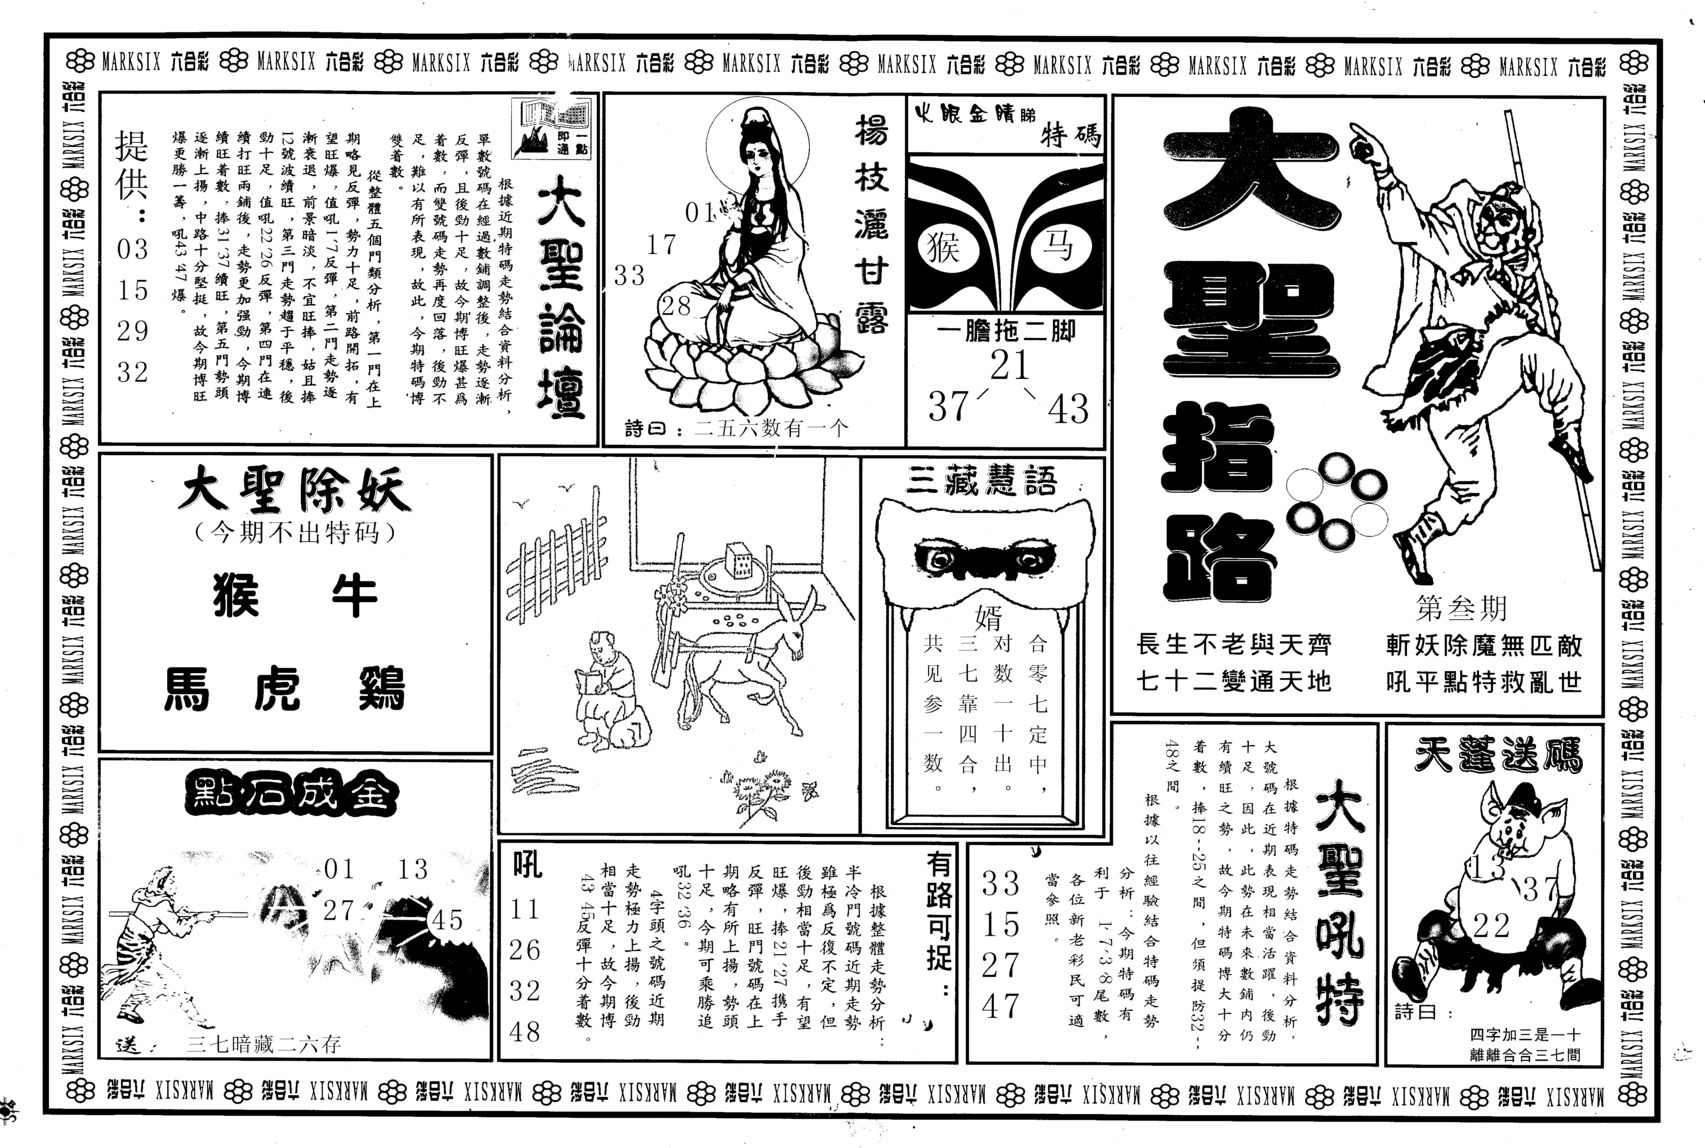 MARKSIX 六合彩 MARKSIX 六合彩 MARKSIX 六合彩 MARKSIX 六合彩 MARKSIX 六合彩 MARKSIX 六合彩 MARKSIX 六合彩 MARKSIX 六合彩 MARKSIX 六合彩 MARKSIX 六合彩
大聖指路
第叁期
斬妖除魔無匹敵
吼平點特救亂世
長生不老與天齊
七十二變通天地
火眼金睛睇
特碼
猴
马
一膽拖二脚
21
37
43
楊枝灑甘露
01
17
33
28
詩曰：二五六数有一个
一點即通
大聖論壇
根據近期特碼走勢結合資料分析，
單數號碼在經過數鋪調整後，走勢逐漸
反彈，且後勁十足，故今期博旺爆甚爲
着數，而雙號碼走勢再度回落，後勁不
足，難以有所表現，故此，今期特碼博
雙着數。
從整體五個門類分析，第一門在上
期略見反彈，勢力十足，前路開拓，有
望旺爆，值吼1·7反彈，第二門走勢逐
漸衰退，前景暗淡，不宜旺捧，姑且捧
12號波續旺，第三門走勢趨于平穩，後
勁十足，值吼22·26反彈，第四門在連
續打旺兩鋪後，走勢更加强勁，今期博
續旺着數，捧31·37續旺，第五門勢頭
逐漸上揚，中路十分堅挺，故今期博旺
爆更勝一籌，吼43·47爆。
提供：
03
15
29
32
大聖除妖
（今期不出特码）
猴 牛
馬 虎 鷄
三藏慧語
婿
合零七定中，
对数一十出。
三七靠四合，
共见参一数。
點石成金
01
13
27
45
送：三七暗藏二六存
有路可捉：
根據整體走勢分析：
半冷門號碼近期走勢
雖極爲反復不定，但
後勁相當十足，有望
旺爆，捧21·27携手
反彈，旺門號碼在上
期略有所上揚，勢頭
十足，今期可乘勝追
吼32·36。
4字頭之號碼近期
走勢極力上揚，後勁
相當十足，故今期博
43 45反彈十分着數。
吼
11
26
32
48
大聖吼特
根據特碼走勢結合資料分析，
大號碼在近期表現相當活躍，後勁
十足，因此，此勢在未來數鋪内仍
有續旺之勢，故今期特碼博大十分
着數，捧18--25之間，但須提防32--
48之間。
根據以往經驗結合特碼走勢
分析：今期特碼有
利于1·7·3·8尾數，
各位新老彩民可適
當參照。
33
15
27
47
天蓬送碼
13
37
22
詩曰：
四字加三是一十
離離合合三七間